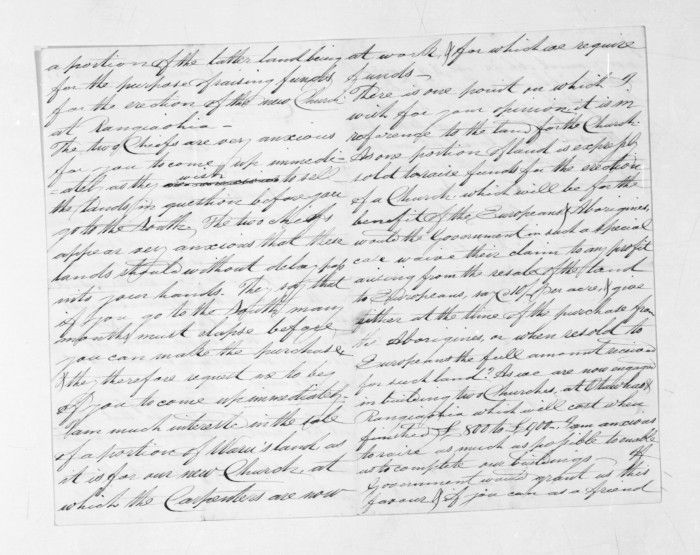 a portion of the latter land being
for the purpose of raising funds
for the erection of the new Church
at Rangiaohia —
The two Chiefs are very anxious
for you to come up immedi-
ately as they wish to sell
the lands in question before you
go to the South. The two chiefs
appear very anxious that these
lands should without delay pass
into your hands. They say that
if you go to the South many
months must elapse before
you can make the purchase
& they therefore request me to beg
of you to come up immediately.
I am much interested in the sale
of a portion of Waru's land as
it is for our new Church at
which the Carpenters are now
at work, & for which we require
funds —
There is one point on which I
wish for your opinion it is in
reference to the land for the Church.
As one portion of land is expressly
sold to raise funds for the erection
of a Church which will be for the
benefit of the Europeans & Aborigines,
would the Government in such a special
case waive their claim to any profit
arising from the resale of the land
to Europeans, say 10/- per acre, & give
either at the time of the purchase from
the Aborigines, or when resold to
Europeans the full amount received
for such land? As we are now engaged
in building two Churches, at &
Rangiaohia which will cost when
finished £800 to £900. I am anxious
to raise as much as possible to enable
us to complete our buildings. If
Government would grant us this
favour & if you can as a friend